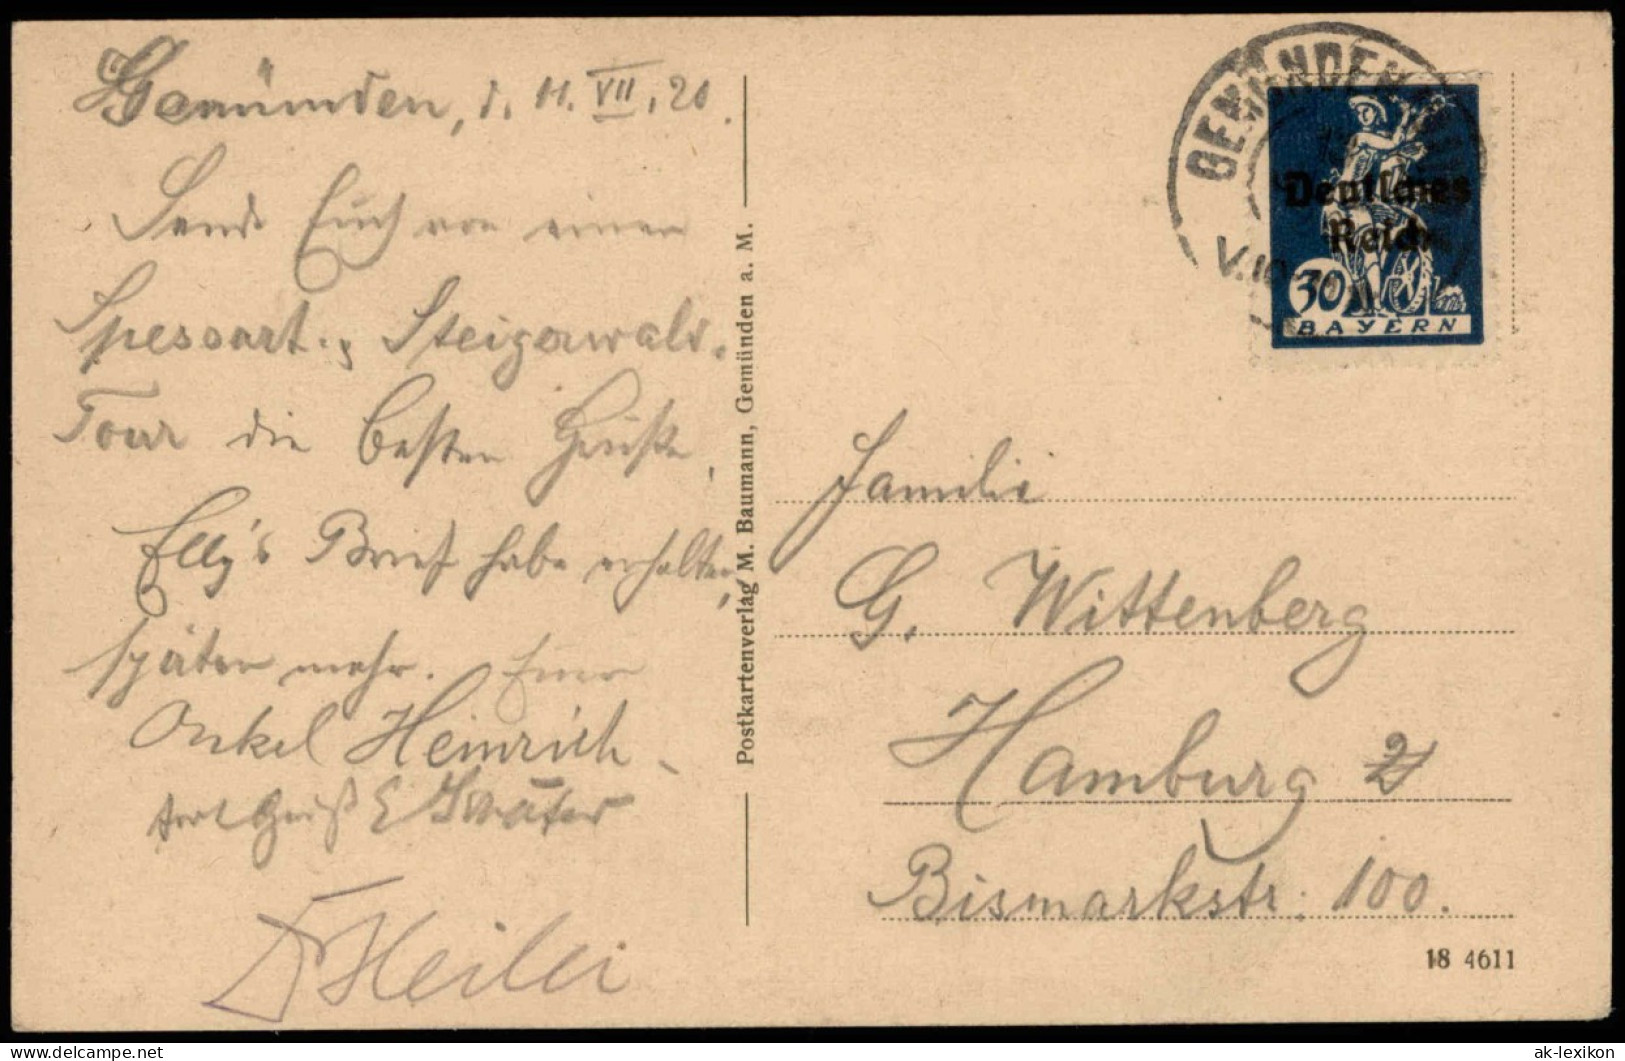 Gemünden, d. 11. VII. 20.
Sende Euch von einer
Spessart- u. Steigerwald-
Tour die besten Grüße,
Elly's Brief habe erhalten,
später mehr. Euer
Onkel Heinrich
Gruß E
Postkartenverlag M. Baumann, Gemünden a. M.
GEMÜNDEN
Deutsches
Reich
30
BAYERN
Familie
G. Wittenberg
Hamburg
Bismarkstr. 100.
18 4611
delcampe.net
ak-lexikon